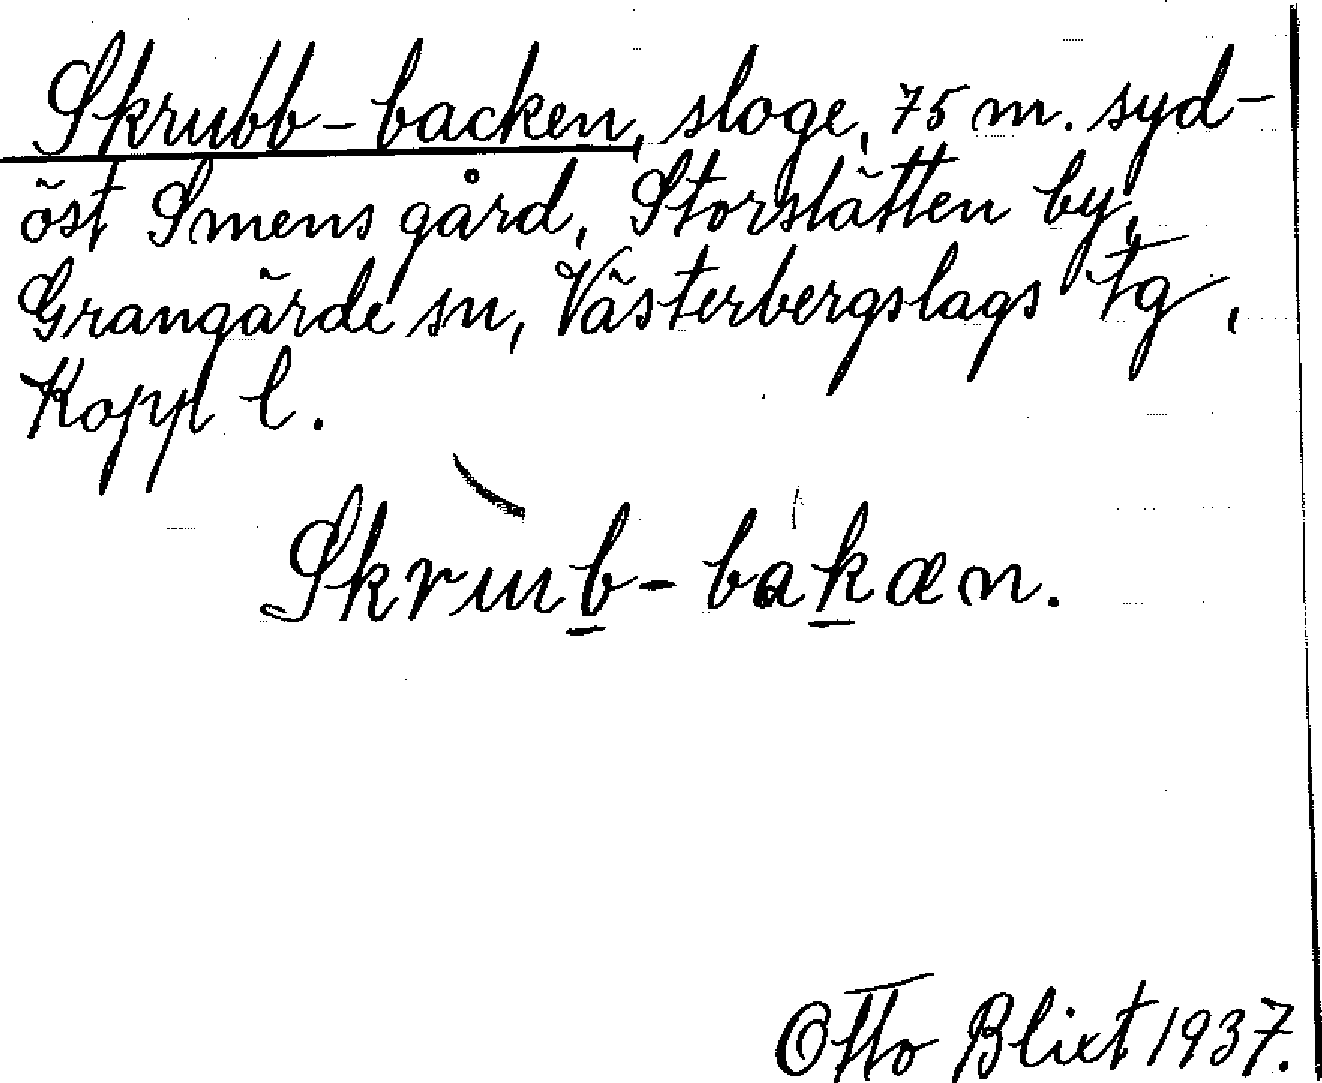 Skrubb-backen, sloge, 75 m. syd-
öst Smens gård, Storslätten by,
Grangärde sn, Västerbergslags fg,
Kopp l.
Skruub-bakæn.
Otto Blixt 1937.